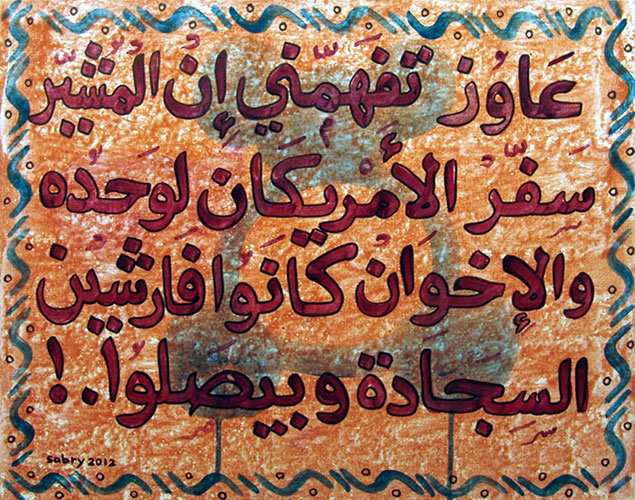 عَاوُز تفَهمّني إنُ المُشيُر
سفّرَ الأمْريكَان لوَحدُه
والإخوَانُ كَانُوا فَارشيُن
السجَادَة وبيَصَلوُا.!
sabry 2012